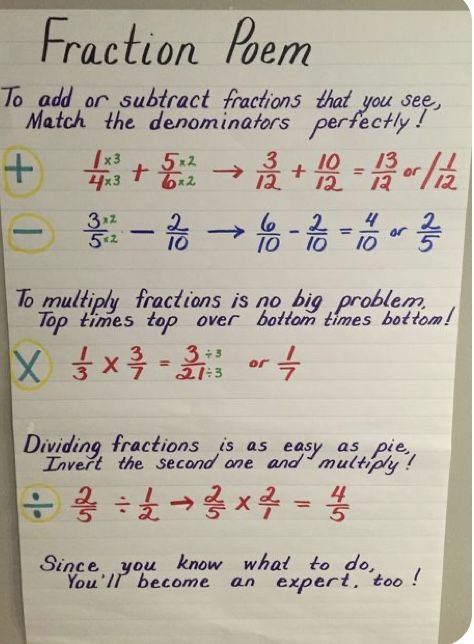 Fraction Poem
To add or subtract fractions that you see,
Match the denominators perfectly!
+ 1×3/4×3 + 5×2/6×2 → 3/12 + 10/12 = 13/12 or 1 1/12
− 3×2/5×2 − 2/10 → 6/10 - 2/10 = 4/10 or 2/5
To multiply fractions is no big problem,
Top times top over bottom times bottom!
X 1/3 × 3/7 = 3÷3/21÷3 or 1/7
Dividing fractions is as easy as pie,
Invert the second one and multiply!
÷ 2/5 ÷ 1/2 → 2/5 × 2/1 = 4/5
Since you know what to do,
You'll become an expert, too!